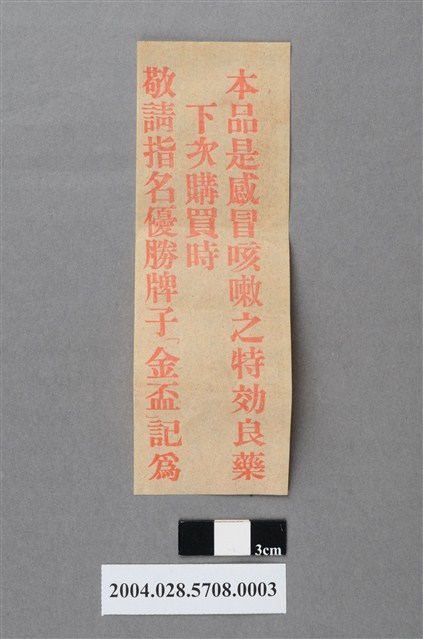 本品是感冒咳嗽之特効良藥
下次購買時
敬請指名優勝牌子「金盃」記爲
3cm
2004.028.5708.0003